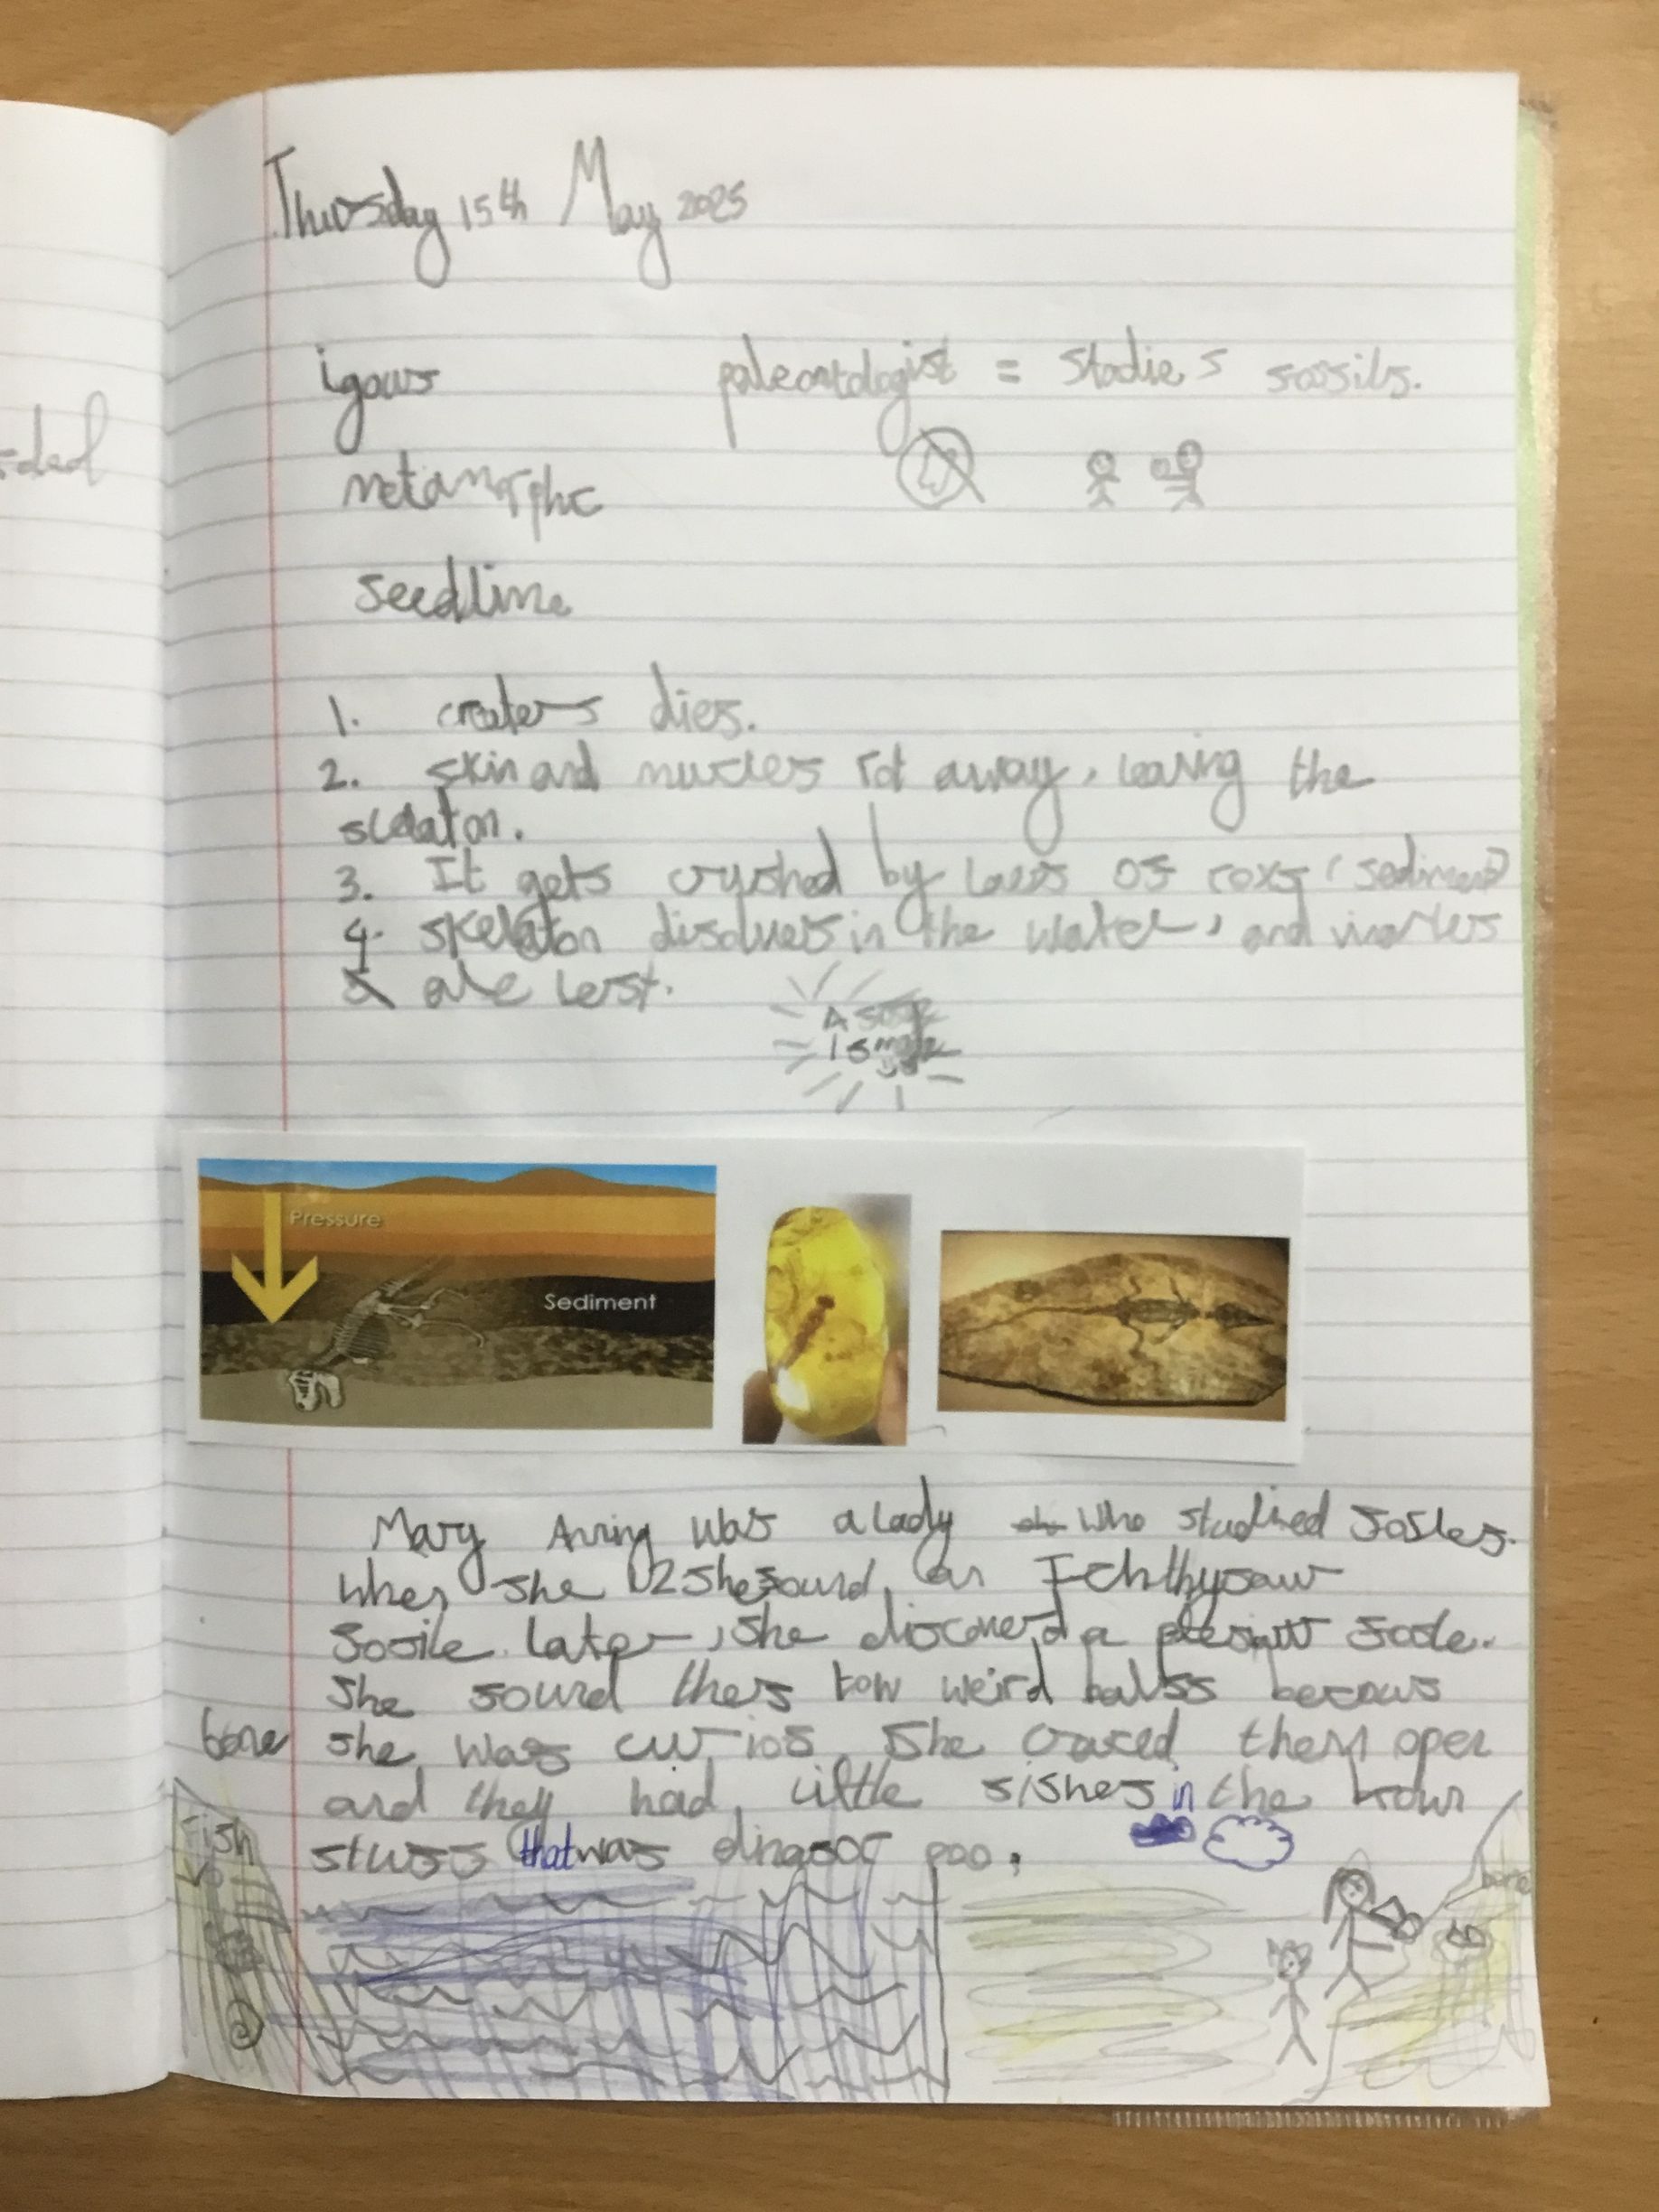 Thursday 15th May 2025
igows
paleontologist = studies fossils.
metamorphc
seedline
1. creaters dies.
2. skin and muscles rot away, leaving the
sklelaton.
3. It gets crushed by layers of roxs (sediment)
4. skelaton disolves in the water, and
are left.
A
is made
Pressure
Sediment
Mary Anning was a lady who studied fosles.
When she 12 she found an Ichthysawr
fosile. later, she discoverd a fosile.
She found thes tow weird balss becaus
she was curios she craced them open
and they had little fishes in the brown
stuff that was dinasor poo.
bone
fish
bone
ded